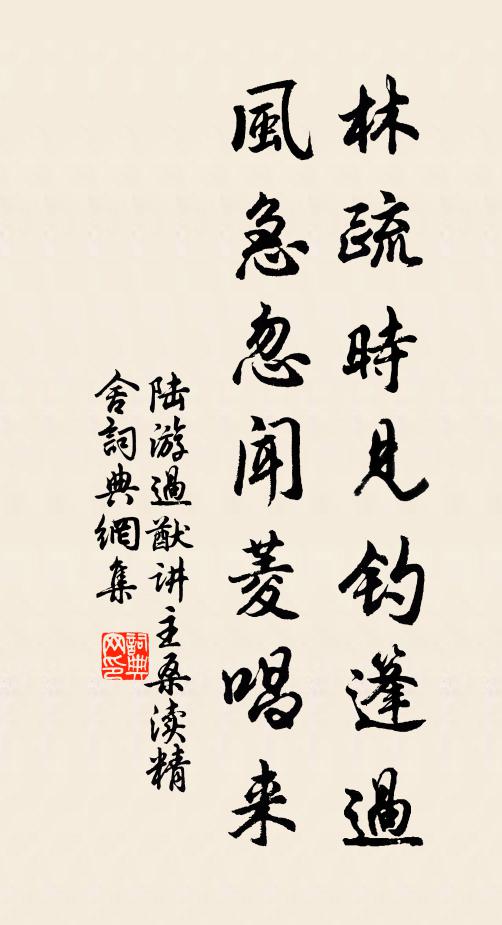 林疏時見钓篷過
風急忽聞菱唱来
陆游過猷讲主桑渎精
舍詞典網集
詞典网印